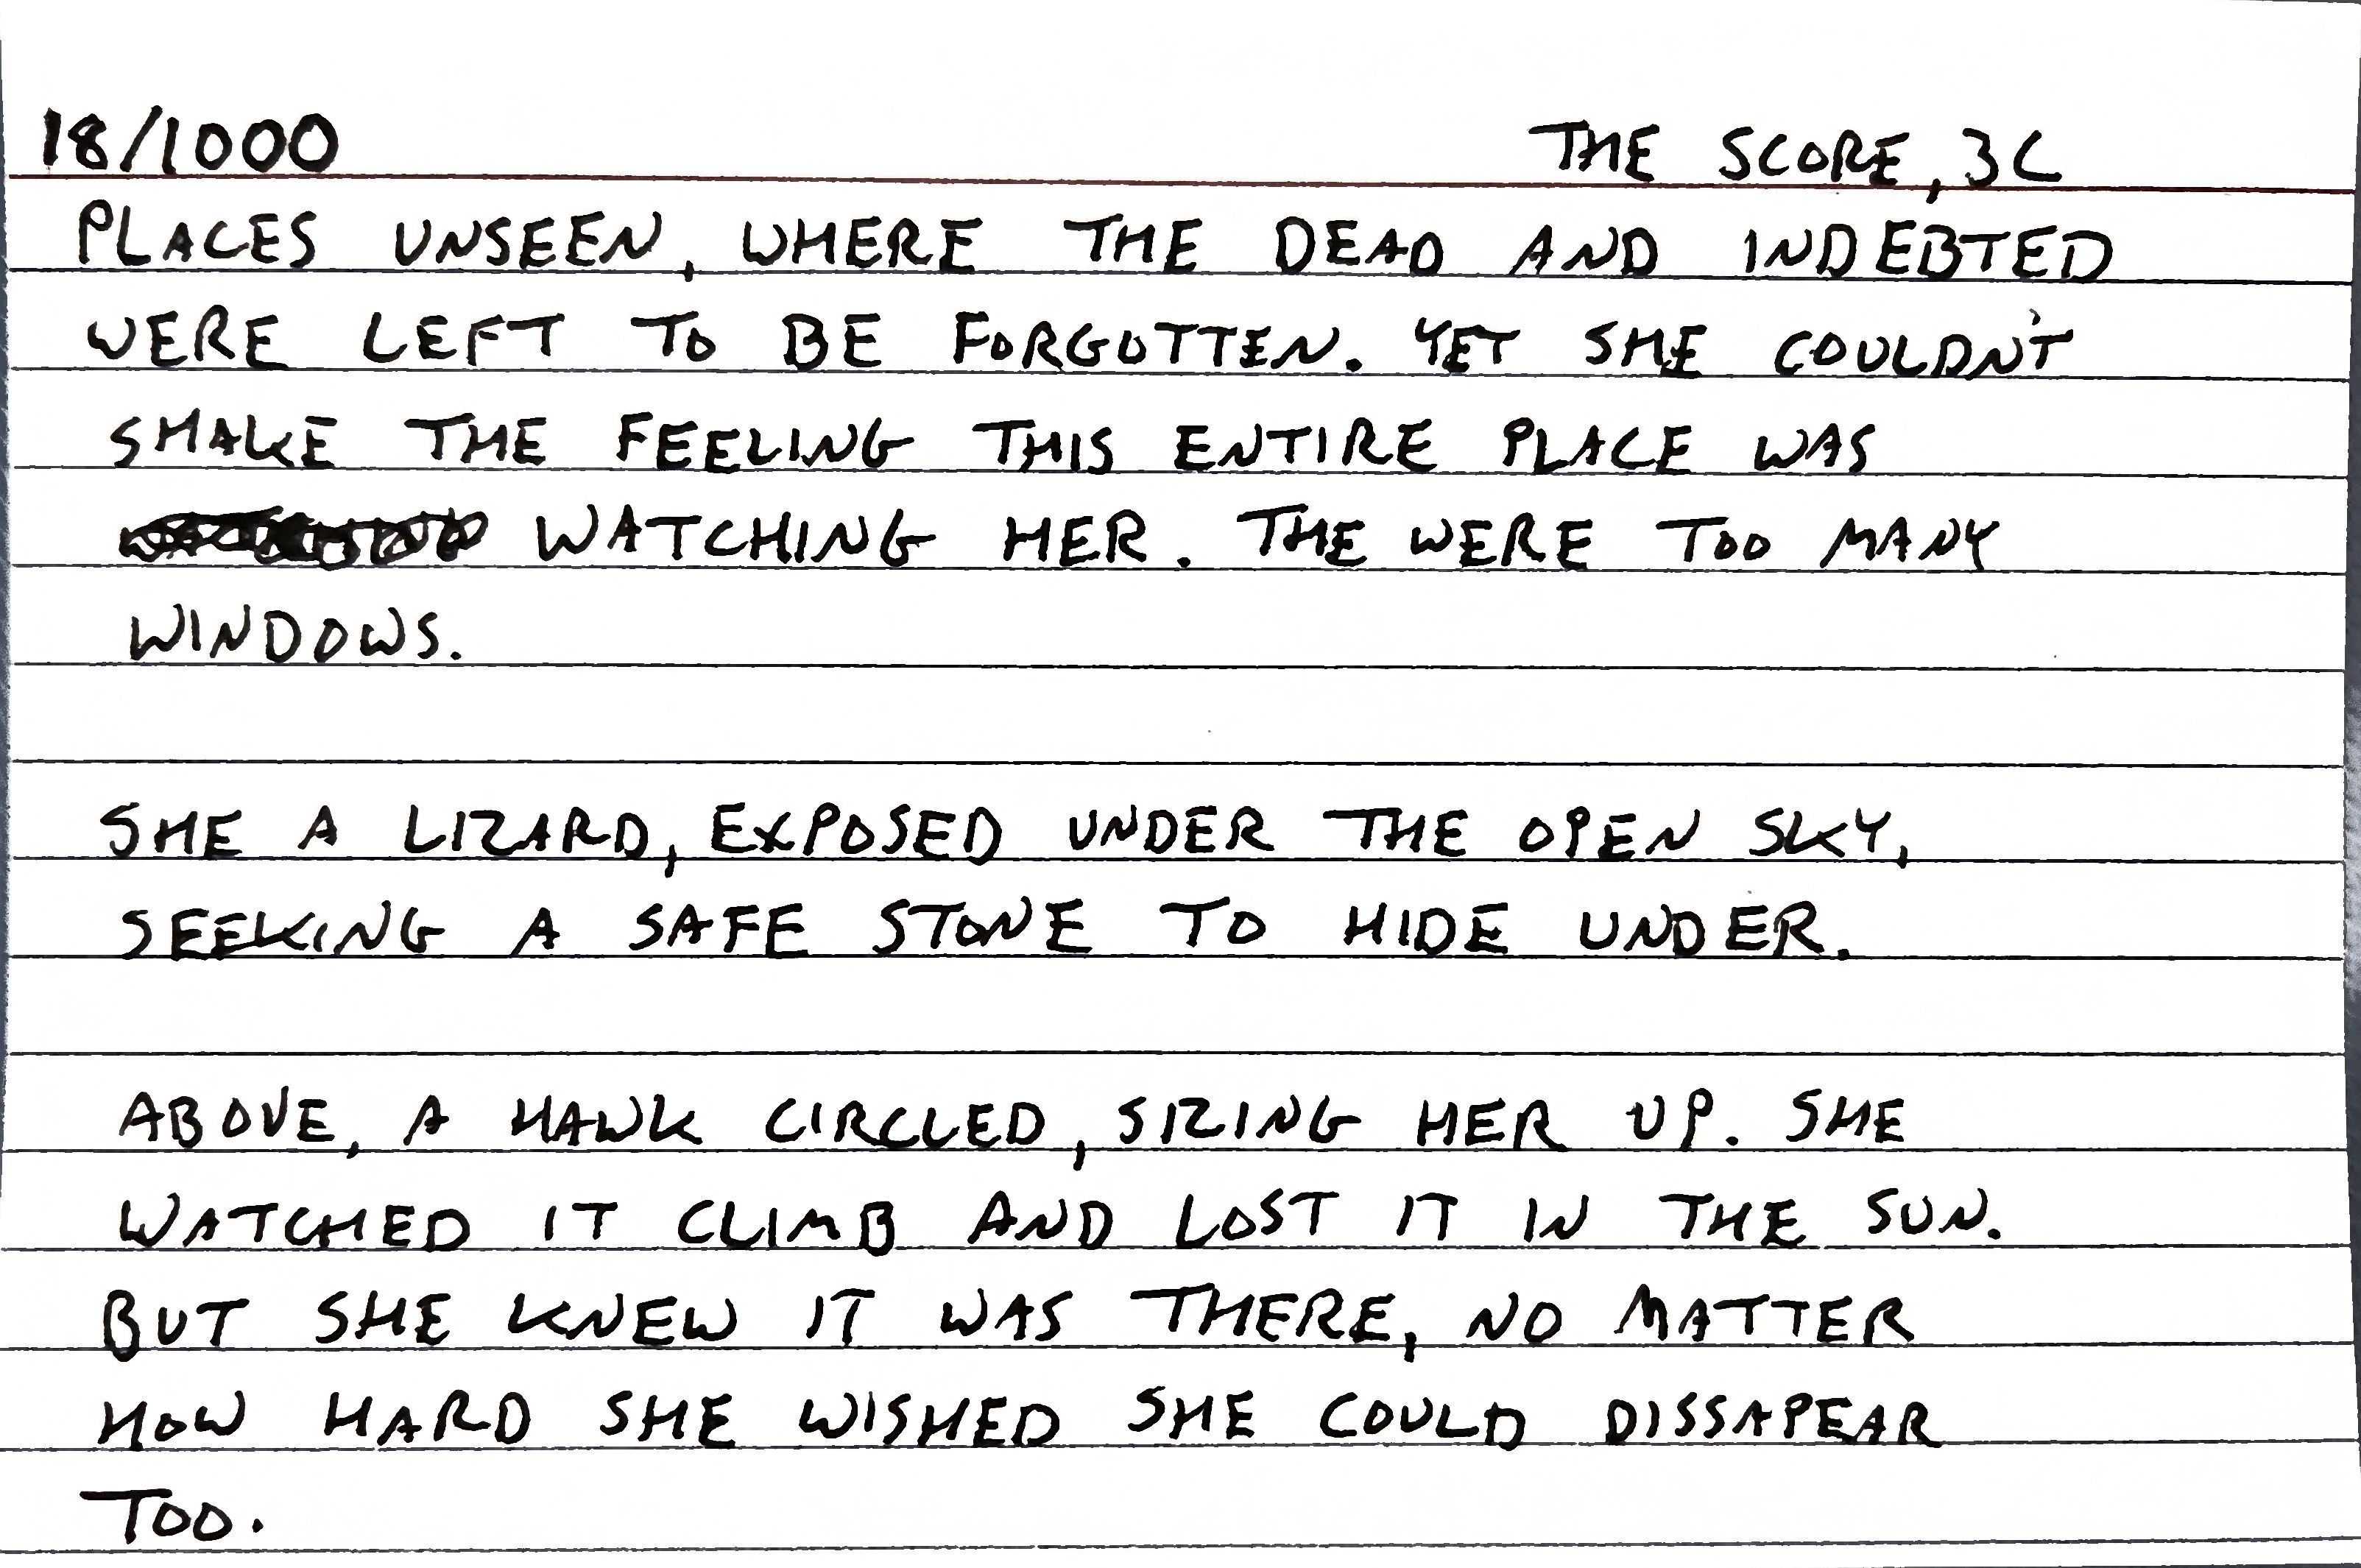 18/1000 THE SCORE, 3C
PLACES UNSEEN, WHERE THE DEAD AND INDEBTED
WERE LEFT TO BE FORGOTTEN. YET SHE COULDN'T
SHAKE THE FEELING THIS ENTIRE PLACE WAS
WATCHING HER. THE WERE TOO MANY
WINDOWS.
SHE A LIZARD, EXPOSED UNDER THE OPEN SKY,
SEEKING A SAFE STONE TO HIDE UNDER.
ABOVE, A HAWK CIRCLED, SIZING HER UP. SHE
WATCHED IT CLIMB AND LOST IT IN THE SUN.
BUT SHE KNEW IT WAS THERE, NO MATTER
HOW HARD SHE WISHED SHE COULD DISSAPEAR
TOO.